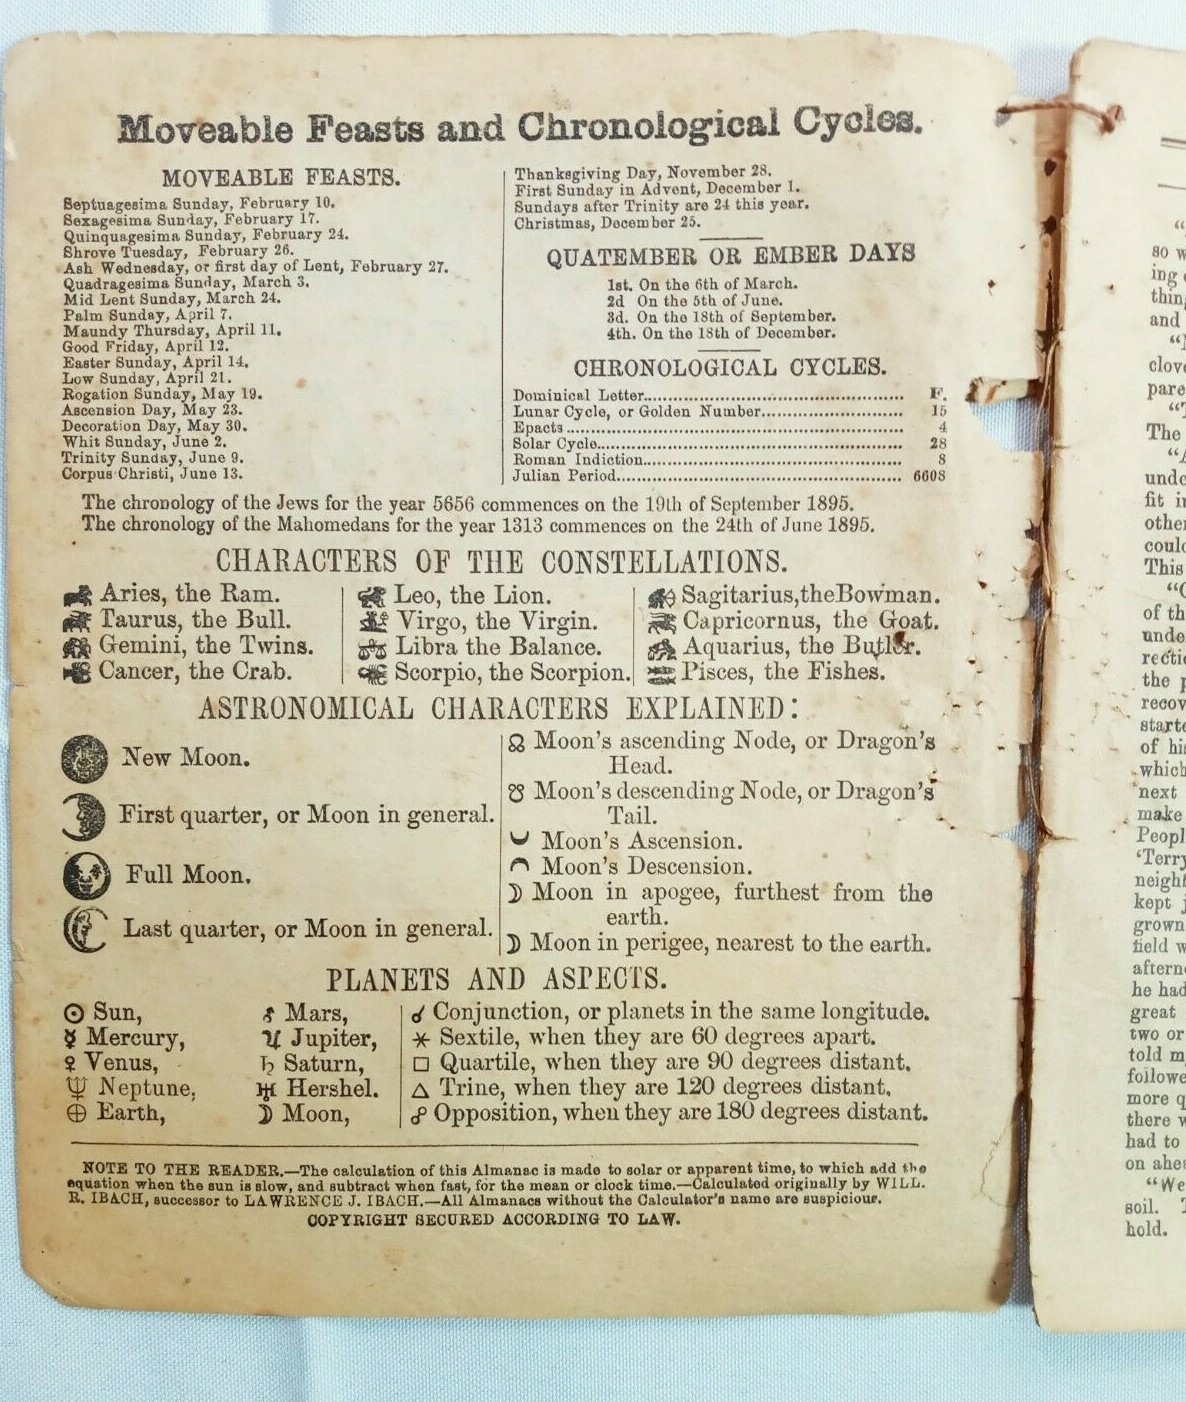 Moveable Feasts and Chronological Cycles.
MOVEABLE FEASTS.
Septuagesima Sunday, February 10.
Sexagesima Sunday, February 17.
Quinquagesima Sunday, February 24.
Shrove Tuesday, February 26.
Ash Wednesday, or first day of Lent, February 27.
Quadragesima Sunday, March 3.
Mid Lent Sunday, March 24.
Palm Sunday, April 7.
Maundy Thursday, April 11.
Good Friday, April 12.
Easter Sunday, April 14.
Low Sunday, April 21.
Rogation Sunday, May 19.
Ascension Day, May 23.
Decoration Day, May 30.
Whit Sunday, June 2.
Trinity Sunday, June 9.
Corpus Christi, June 13.
Thanksgiving Day, November 28.
First Sunday in Advent, December 1.
Sundays after Trinity are 24 this year.
Christmas, December 25.
QUATEMBER OR EMBER DAYS
1st. On the 6th of March.
2d On the 5th of June.
3d. On the 18th of September.
4th. On the 18th of December.
CHRONOLOGICAL CYCLES.
Dominical Letter.......... F.
Lunar Cycle, or Golden Number.......... 15
Epacts.......... 4
Solar Cycle.......... 28
Roman Indiction.......... 8
Julian Period.......... 6608
The chronology of the Jews for the year 5656 commences on the 19th of September 1895.
The chronology of the Mahomedans for the year 1313 commences on the 24th of June 1895.
CHARACTERS OF THE CONSTELLATIONS.
Aries, the Ram.
Taurus, the Bull.
Gemini, the Twins.
Cancer, the Crab.
Leo, the Lion.
Virgo, the Virgin.
Libra the Balance.
Scorpio, the Scorpion.
Sagitarius,theBowman.
Capricornus, the Goat.
Aquarius, the Butler.
Pisces, the Fishes.
ASTRONOMICAL CHARACTERS EXPLAINED:
New Moon.
First quarter, or Moon in general.
Full Moon.
Last quarter, or Moon in general.
☊ Moon's ascending Node, or Dragon's
Head.
☋ Moon's descending Node, or Dragon's
Tail.
Moon's Ascension.
Moon's Descension.
☽ Moon in apogee, furthest from the
earth.
☽ Moon in perigee, nearest to the earth.
PLANETS AND ASPECTS.
☉ Sun,
☿ Mercury,
♀ Venus,
♆ Neptune,
⊕ Earth,
♂ Mars,
♃ Jupiter,
♄ Saturn,
♅ Hershel.
☽ Moon,
☌ Conjunction, or planets in the same longitude.
⚹ Sextile, when they are 60 degrees apart.
□ Quartile, when they are 90 degrees distant.
△ Trine, when they are 120 degrees distant.
☍ Opposition, when they are 180 degrees distant.
NOTE TO THE READER.—The calculation of this Almanac is made to solar or apparent time, to which add the
equation when the sun is slow, and subtract when fast, for the mean or clock time.—Calculated originally by WILL.
R. IBACH, successor to LAWRENCE J. IBACH.—All Almanacs without the Calculator's name are suspicious.
COPYRIGHT SECURED ACCORDING TO LAW.
so w
ing
thing
and
clove
pare
The
unde
fit in
other
could
This
of th
unde
rectio
the p
recov
starte
of his
which
next
make
Peopl
'Terry
neigh
kept j
grown
field w
aftern
he had
great
two or
told m
followe
more q
there w
had to
on ahe
"We
soil.
hold.